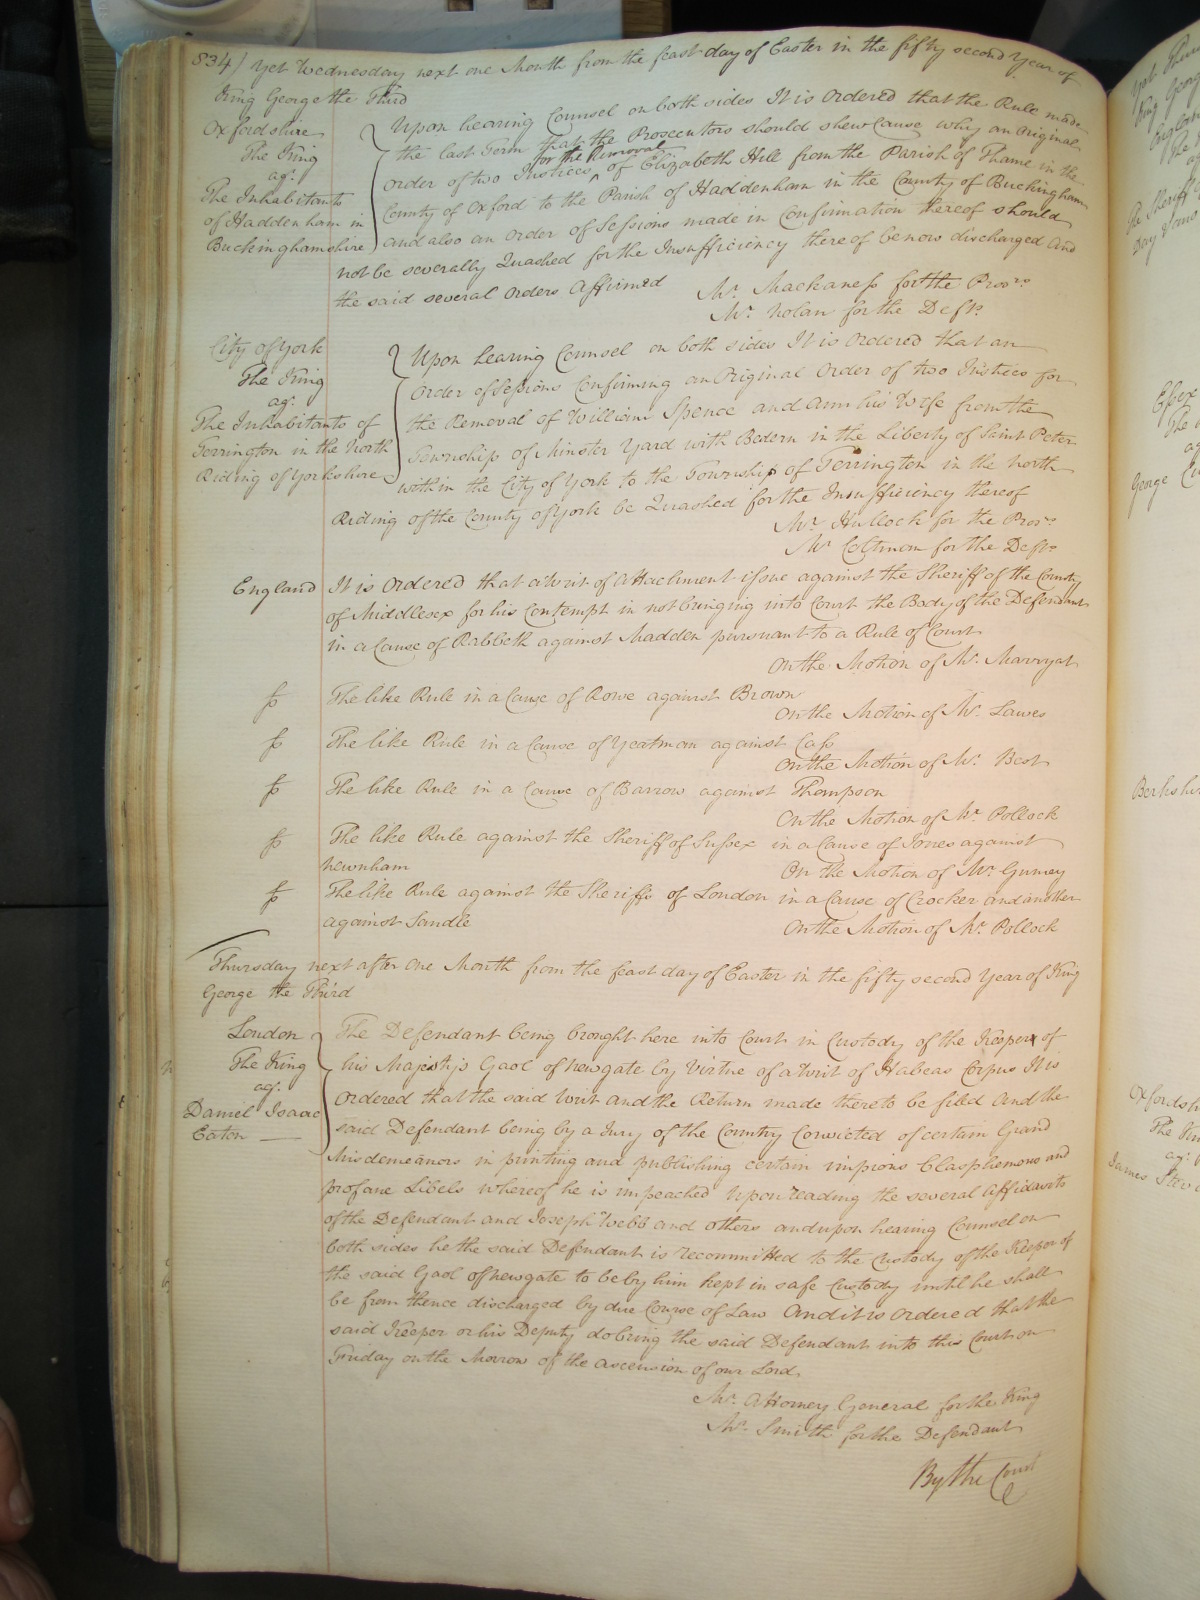 834) Yet Wednesday next one Month from the feast day of Easter in the fifty second Year of
King George the Third
Oxfordshire
The King
agt.
The Inhabitants
of Haddenham in
Buckinghamshire
Upon hearing Counsel on both sides It is Ordered that the Rule made
the last Term that the Prosecutors should shew Cause why an Original
for the Removal
Order of two Justices ^ of Elizabeth Hill from the Parish of Thame in the
County of Oxford to the Parish of Haddenham in the County of Buckingham
and also an Order of Sessions made in Confirmation thereof should
not be severally Quashed for the Insufficiency thereof be now discharged And
the said several Orders Affirmed
Mr. Mackaness for the Prosrs.
Mr. Nolan for the Defts.
City of York
The King
agt.
The Inhabitants of
Terrington in the North
Riding of Yorkshire
Upon hearing Counsel on both sides It is Ordered that an
Order of Sessions Confirming an Original Order of two Justices for
the Removal of William Spence and Ann his Wife from the
Township of Minster Yard with Bedern in the Liberty of Saint Peter
within the City of York to the Township of Terrington in the North
Riding of the County of York be Quashed for the Insufficiency thereof
Mr. Hullock for the Prosrs.
Mr. Coltman for the Defts.
England
It is Ordered that a Writ of Attachment issue against the Sheriff of the County
of Middlesex for his Contempt in not bringing into Court the Body of the Defendant
in a Cause of Rabbeth against Madden pursuant to a Rule of Court
On the Motion of Mr. Marryat
The like Rule in a Cause of Rowe against Brown
On the Motion of Mr. Lawes
The like Rule in a Cause of Yeatman against Cass
On the Motion of Mr. Best
The like Rule in a Cause of Barrow against Thompson
On the Motion of Mr. Pollock
The like Rule against the Sheriff of Sussex in a Cause of Jones against
Newnham
On the Motion of Mr. Gurney
The like Rule against the Sheriffs of London in a Cause of Crocker and another
against Sandle
On the Motion of Mr. Pollock
Thursday next after One Month from the feast day of Easter in the fifty second Year of King
George the Third
London
The King
agt.
Daniel Isaac
Eaton
The Defendant being brought here into Court in Custody of the Keeper of
his Majesty's Gaol of Newgate by Virtue of a Writ of Habeas Corpus It is
Ordered that the said Writ and the Return made thereto be filed And the
said Defendant being by a Jury of the Country Convicted of certain Grand
Misdemeanors in printing and publishing certain impious blasphemous and
profane Libels whereof he is impeached Upon reading the several Affidavits
of the Defendant and Joseph Webb and others and upon hearing Counsel on
both sides he the said Defendant is recommitted to the Custody of the Keeper of
the said Gaol of Newgate to be by him kept in safe Custody until he shall
be from thence discharged by due Course of Law And it is Ordered that the
said Keeper or his Deputy do bring the said Defendant into this Court on
Friday on the Morrow of the Ascension of our Lord.
Mr. Attorney General for the King
Mr. Smith for the Defendant
By the Court